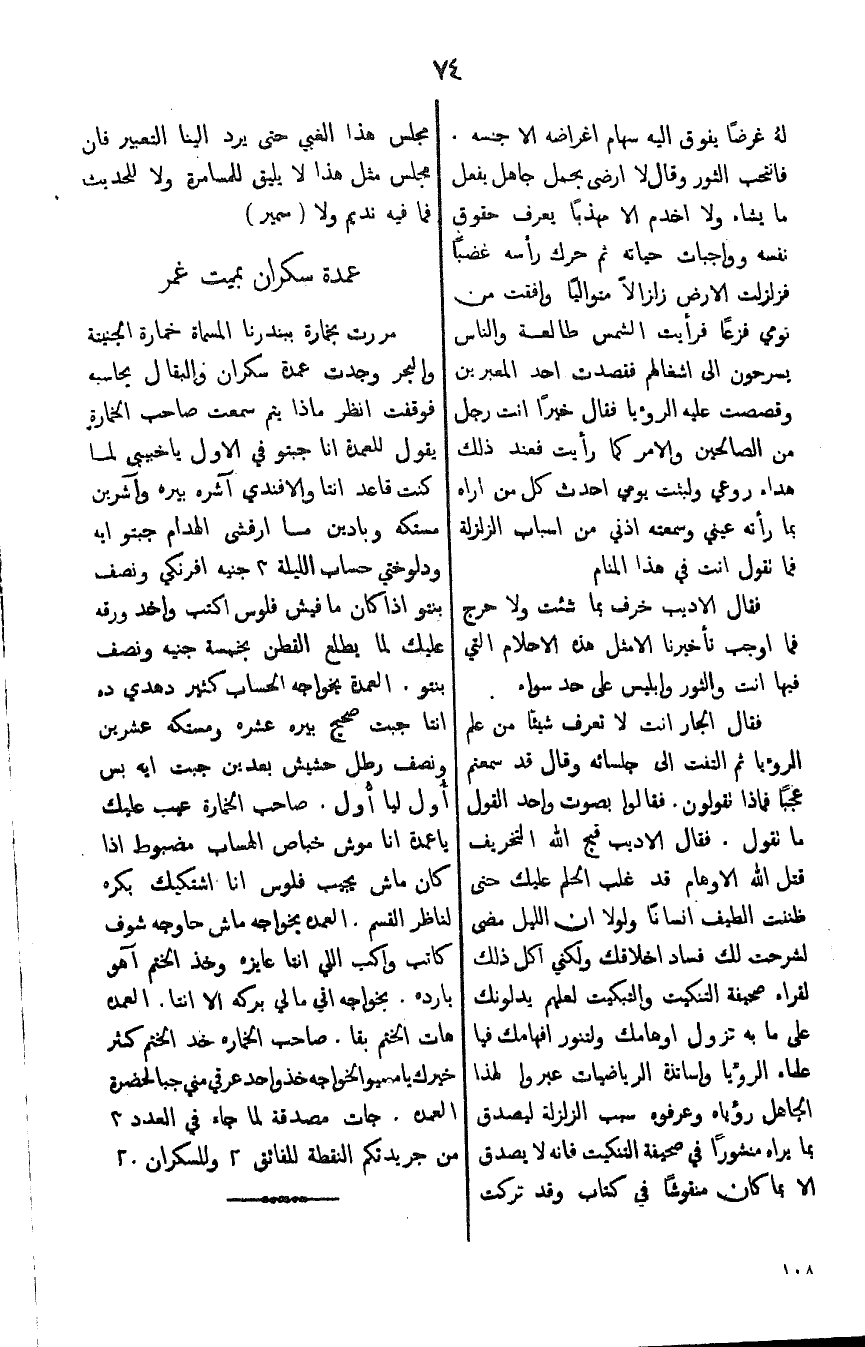 ٧٤
لهُ غرضًا يفوق اليه سهام اغراضه الا جنسه .
فانتحب الثور وقال لا ارضى بحمل جاهل يفعل
ما يشاء ولا اخدم الا مهذبًا يعرف حقوق
نفسه وواجبات حياته ثم حرك رأسه غضبًا
فزلزلت الارض زلزالاً متواليًا وافقت من
نومي فزعًا فرأيت الشمس طالعة والناس
يسرحون الى اشغالهم فقصدت احد المعبرين
وقصصت عليه الروٴيا فقال خيرًا انت رجل
من الصالحين والامر كما رأيت فعند ذلك
هداء روعي ولبثت يومي احدث كل من اراه
بما رأته عيني وسمعته اذني من اسباب الزلزلة
فما نقول انت في هذا المنام
فقال الاديب خرف بما شئت ولا حرج
فما اوجب تأخيرنا الامثل هذه الاحلام التي
فيها انت والثور وابليس على حد سواء .
فقال الجار انت لا تعرف شيئًا من علم
الروٴيا ثم التفت الى جلسائه وقال قد سمعتم
عجبًا فماذا نقولون . فقالوا بصوت واحد القول
ما نقول . فقال الاديب قبح الله التخريف
قتل الله الاوهام قد غلب الحلم عليك حتى
ظننت الطيف انسانًا ولولا ان الليل مضى
لشرحت لك فساد اخلاقك ولكني آكل ذلك
لقراء صحيفة التنكيت والتبكيت لعلهم يدلونك
على ما به تزول اوهامك ولتنور افهامك فيا
علماء الروٴيا واساتذة الرياضيات عبروا لهذا
الجاهل رؤياه وعرفوه سبب الزلزلة ليصدق
بما يراه منشورًا في صحيفة التنكيت فانه لا يصدق
الا بما كان منقوشًا في كتاب وقد تركت
مجلس هذا الغبي حتى يرد الينا التعبير فان
مجلس مثل هذا لا يليق للمسامرة ولا للحديث
فما فيه نديم ولا ( سمير )
عمدة سكران بميت غمر
مررت بخمارة ببندرنا المسماة خمارة الجنينة
والبحر وجدت عمدة سكران والبقال يحاسبه
فوقفت انظر ماذا يتم سمعت صاحب الخمارة
يقول للعمدة انا جبتو في الاول ياخبيبي لما
كنت قاعد انتا والافندي آشره بيره وآشرين
مستكه وبادين مسا ارفشى الهدام جبتو ايه
ودلوختي حساب الليلة ٢ جنيه افرنكي ونصف
بنتو اذاكان مافيش فلوس اكتب واخد ورقه
عليك لما يطلع القطن بخمسة جنيه ونصف
بنتو . العمدة يخواجه الحساب كثير دهدي ده
انتا جبت صحيح بيره عشره ومستكه عشرين
ونصف رطل حشيش بعدين جبت ايه بس
أول ليا أول . صاحب الخمارة عيب عليك
ياعمدة انا موش خباص الهساب مضبوط اذا
كان ماش يجيب فلوس انا اشتكيك بكره
لناظر القسم . العمده يخواجه ماش حاوجه شوف
كاتب واكب اللي انتا عايزه وخذ الختم آهو
بارده . يخواجه اني مالي بركه الا انتا . العمده
هات الختم بقا . صاحب الخماره خد الختم كثر
خيرك يامسيو الخواجه خذ واحد عرقي مني جبا لحضرة
العمده . جات مصدقة لما جاء في العدد ٢
من جريدتكم النقطة للفائق ٢ وللسكران ٢٠
١٠٨